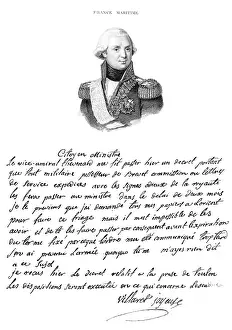 FRANCE MARITIME
Citoyen Ministre
Le vice-amiral Thevenard me fit passer hier un decret portant
que tout militaire possesseur de brevet commissions ou lettres
de services expediées avec les signes de la royauté
les fasse passer au ministre dans le delai de deux mois
je te previens que j'ai demandé tous mes papiers à Lorient
pour faire ce triage mais il m'est impossible de les
avoir et de te les faire passer par consequent avant l'expiration
du terme fixé parceque l'ordre m'a été communiqué
je reçus hier le decret relatif à la prise de Toulon
les dispositions seront executées en ce qui concerne
Villaret Joyeuse